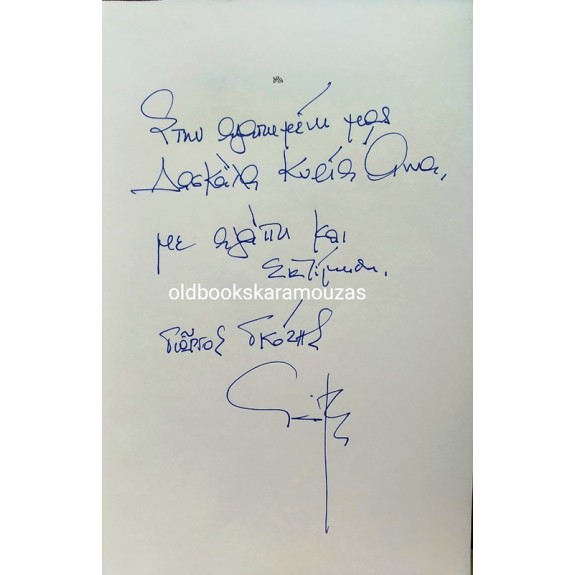 Στην αγαπημένη μας
Δασκάλα Κυρία
με αγάπη και
εκτίμηση.
oldbookskaramouzas
Γιώργος Γκόζης